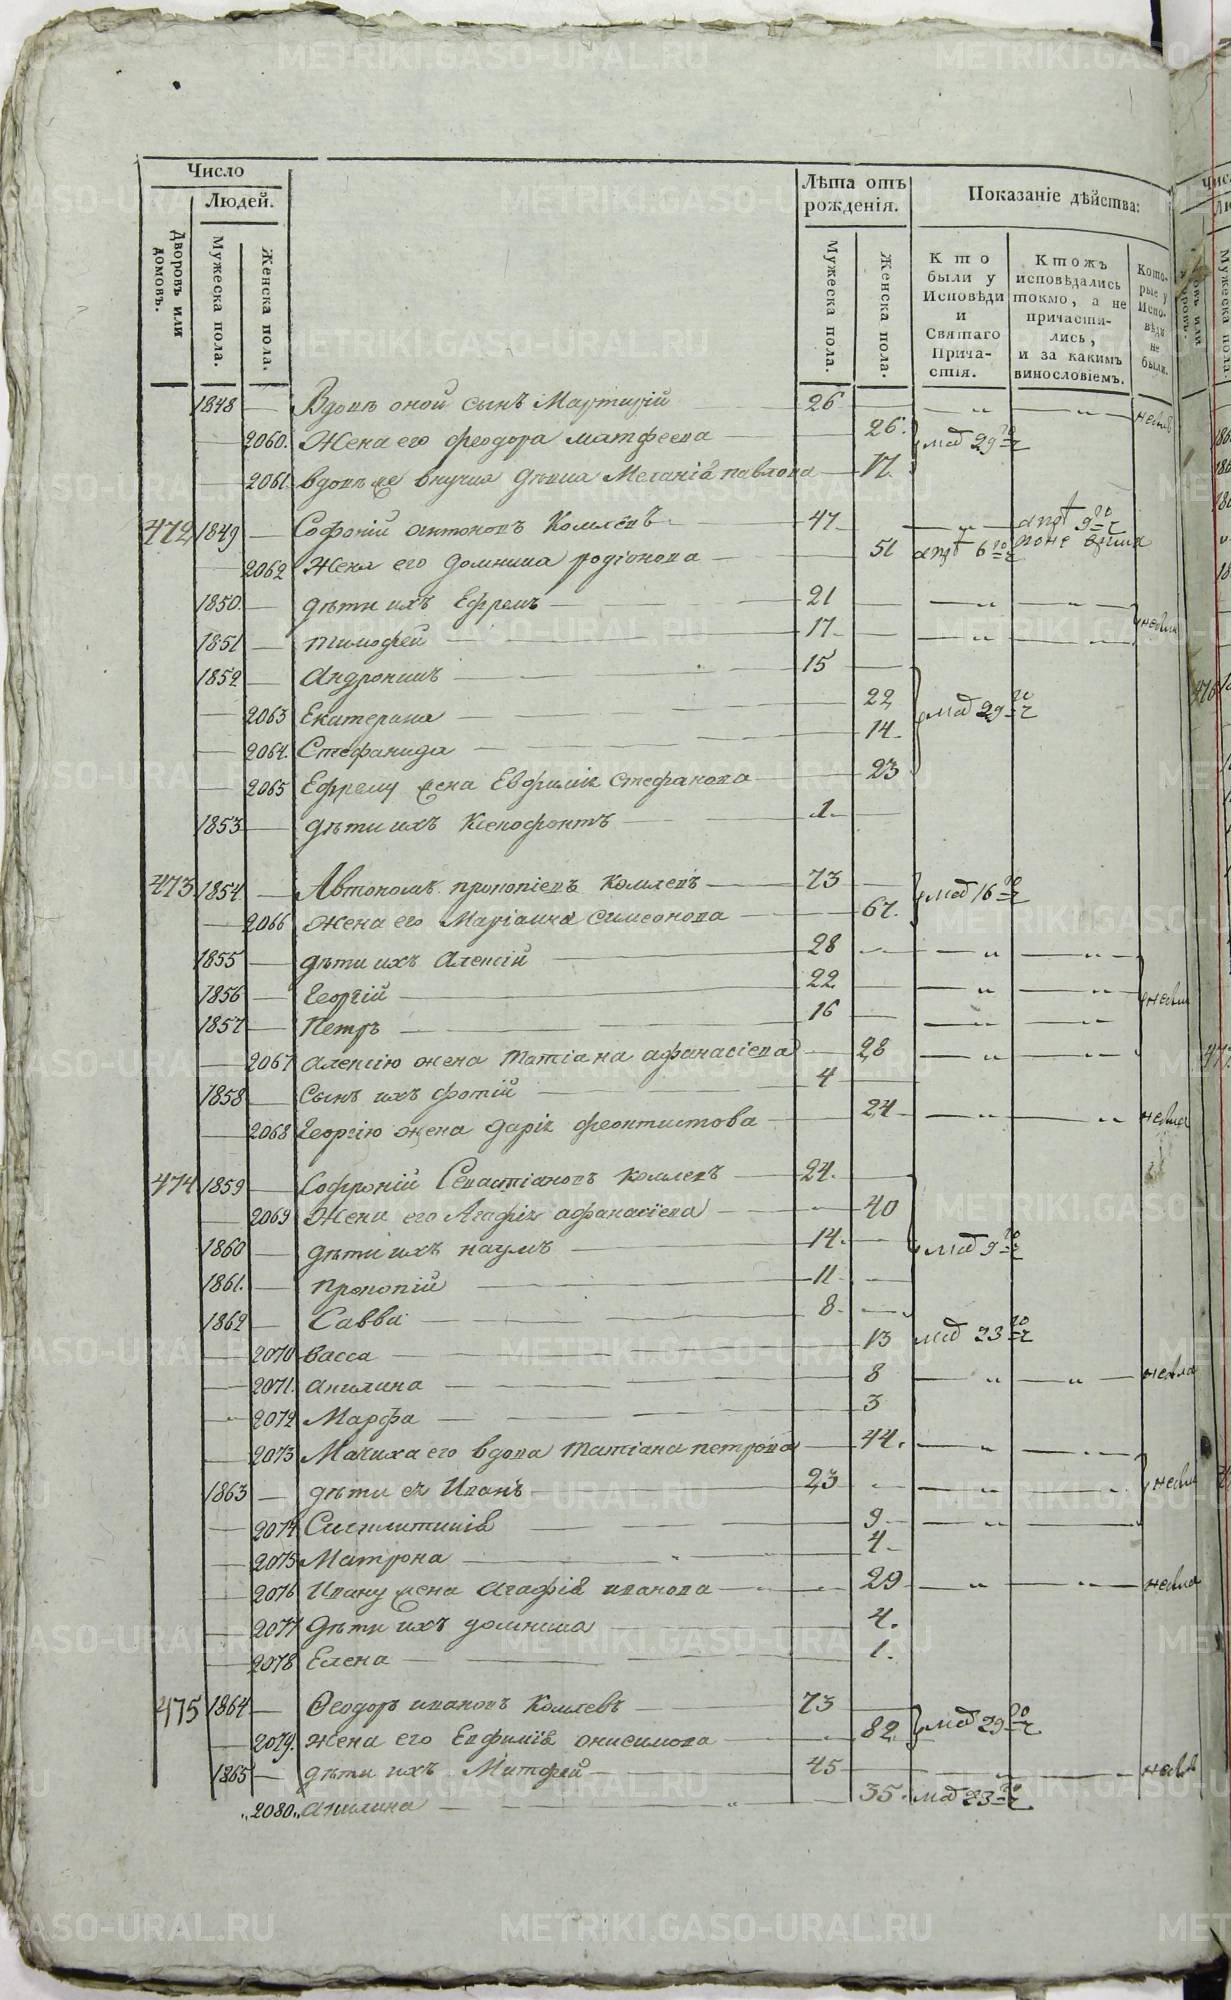 Число
Людей.
Дворовъ или домовъ.
Мужеска пола.
Женска пола.
Лѣта отъ рожденія.
Мужеска пола.
Женска пола.
Показаніе дѣйства:
Кто были у Исповѣди и Святаго Причастія.
Ктожъ исповѣдались токмо, а не причастились, и за какимъ винословіемъ.
Которые у Исповѣди не были.
1848 — Вдовѣ оной сынъ Мартирій — 26 — „ — „ —
— 2060. Жена его Феодора Матфеева — 26. 29
— 2061 вдовѣ же внучка дѣвица Меланіа павлова — 17.
472 1849 — Софроній антоновъ Комлевъ — 47 — „ — 9
— 2062 Жена его домника родіонова — 51 6
1850. — дѣти ихъ Ефремъ — 21 — „ — „ —
1851 — тимофей — 17. — „ — „ —
1852 — Андроникъ — 15 —
— 2063 Екатерина — 22 29
— 2064. Стефанида — 14.
— 2065 Ефрему жена Евфиміа стефанова — 23
1853 — дѣти ихъ Ксенофонтъ — 1. —
473 1854. — Автономъ прокопіевъ Комлевъ — 73 — 16
— 2066 Жена его Маріамна симеонова — 67.
1855 — дѣти ихъ Алексій — 28 — „ — „
1856 — Георгій — 22 — „ — „
1857 — Петръ — 16 — „ — „
— 2067 алексію жена татіана афанасіева — 28 — „ — „
1858 — сынъ ихъ фотій — 4 —
— 2068 Георгію жена даріа феоктистова — 24 — „ — „
474 1859 — Софроній Севастіановъ комлевъ — 24. —
— 2069 Жена его Агафіа афанасіева — 40
1860 — дѣти ихъ наумъ — 14. — 9
1861. — прокопій — 11 —
1862 — Савва — 8. —
— 2070 васса — 13 23
— 2071. акилина — 8 — „ — „ —
— 2072 Марфа — 3
— 2073 Мачиха его вдова татіана петрова — 44. — „ — „
1863 — дѣти ея Иванъ — 23 — „ — „
— 2074 Сигклитикіа — 9 — „ — „
— 2075 Матрона — 4
— 2076 Ивану жена агафіа иванова — 29 — „ — „ —
— 2077 дѣти ихъ домника — 4.
— 2078 Елена — 1.
475 1864 — Ѳеодоръ ивановъ Комлевъ — 73 —
— 2079. жена его Евфиміа онисимова — 82 29
1865 — дѣти ихъ Матфей — 45 — „ —
2080. акилина — „ — 35. 23
METRIKI.GASO-URAL.RU